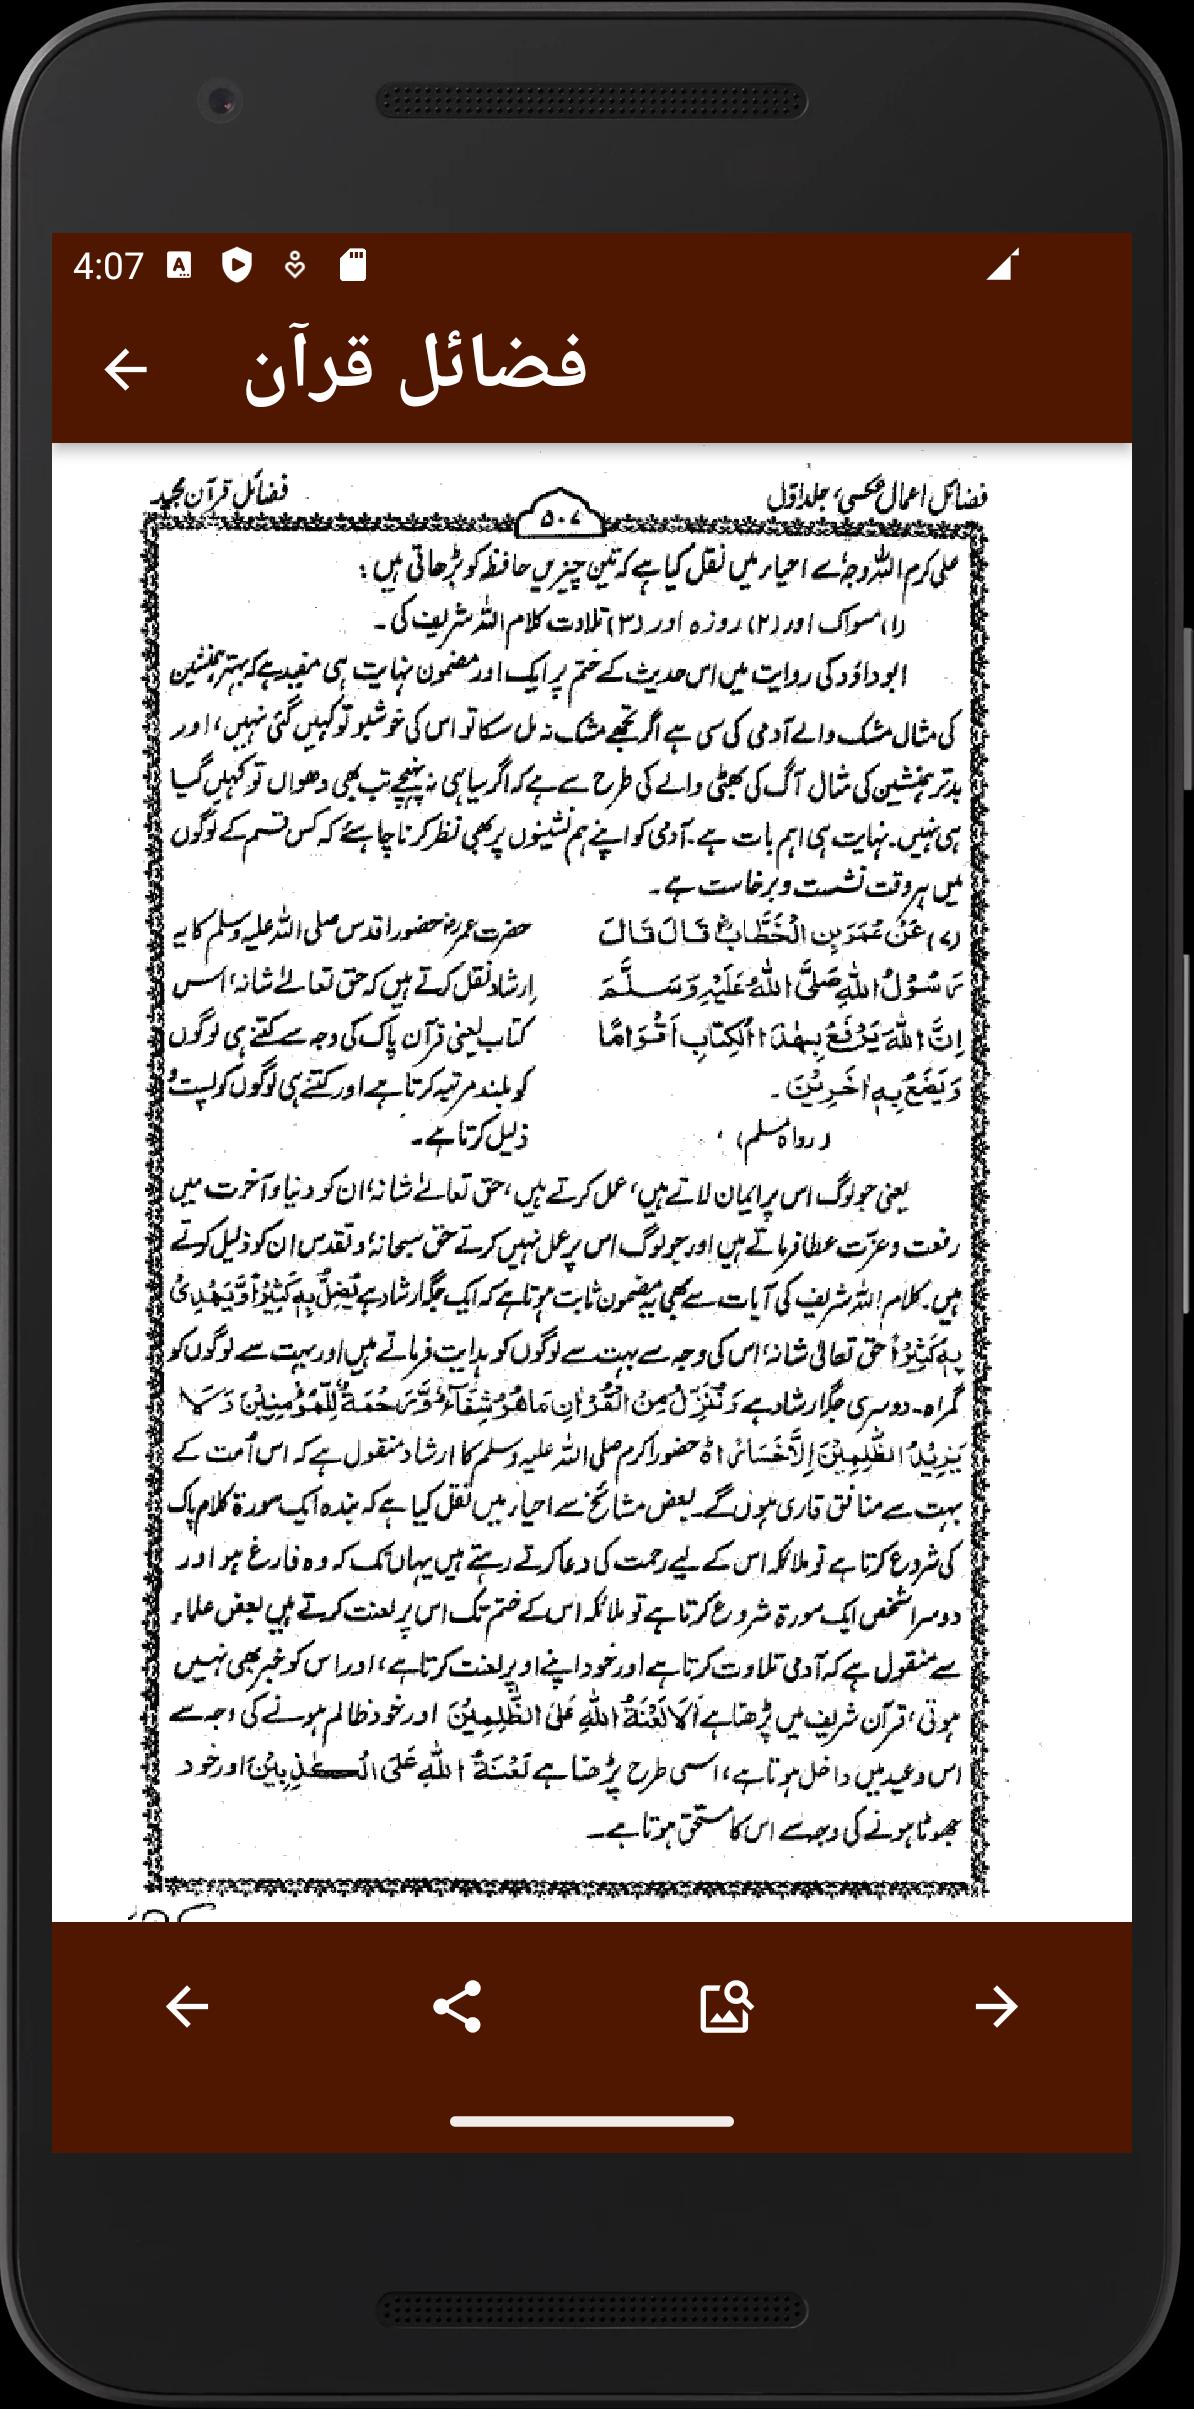 4:07
فضائل قرآن
فضائل اعمال عکسی، جلد اوّل
فضائل قرآن مجید
۵۰۷
علی کرم اللہ وجہٗ سے احیاء میں نقل کیا ہے کہ تین چیزیں حافظہ کو بڑھاتی ہیں:
(۱) مسواک اور (۲) روزہ اور (۳) تلاوت کلام اللہ شریف کی۔
ابوداؤد کی روایت میں اس حدیث کے ختم پر ایک اور مضمون نہایت ہی مفید ہے کہ بہتر ہمنشین
کی مثال مشک والے آدمی کی سی ہے اگر تجھے مشک نہ مل سکا تو اس کی خوشبو تو کہیں گئی نہیں، اور
بدتر ہمنشین کی مثال آگ کی بھٹی والے کی طرح سے ہے کہ اگر سیاہی نہ پہنچے تب بھی دھواں تو کہیں گیا
ہی نہیں۔ نہایت ہی اہم بات ہے۔ آدمی کو اپنے ہم نشینوں پر بھی نظر کرنا چاہئے کہ کس قسم کے لوگوں
میں ہر وقت نشست و برخاست ہے۔
(۷) عَنْ عُمَرَ بْنِ الْخَطَّابِؓ قَالَ قَالَ
رَسُوْلُ اللهِ صَلَّى اللهُ عَلَيْهِ وَسَلَّمَ
اِنَّ اللهَ يَرْفَعُ بِهٰذَا الْكِتَابِ اَقْوَامًا
وَيَضَعُ بِهٖ اٰخَرِيْنَ۔
(رواہ مسلم)
حضرت عمرؓ حضور اقدس صلی اللہ علیہ وسلم کا یہ
ارشاد نقل کرتے ہیں کہ حق تعالےٰ شانہٗ اس
کتاب یعنی قرآن پاک کی وجہ سے کتنے ہی لوگوں
کو بلند مرتبہ کرتا ہے اور کتنے ہی لوگوں کو پست و
ذلیل کرتا ہے۔
یعنی جو لوگ اس پر ایمان لاتے ہیں، عمل کرتے ہیں، حق تعالےٰ شانہٗ ان کو دنیا و آخرت میں
رفعت و عزّت عطا فرماتے ہیں اور جو لوگ اس پر عمل نہیں کرتے حق سبحانہٗ و تقدس ان کو ذلیل کرتے
ہیں۔ کلام اللہ شریف کی آیات سے بھی یہ مضمون ثابت ہوتا ہے کہ ایک جگہ ارشاد ہے يُضِلُّ بِهٖ كَثِيْرًا وَّيَهْدِىْ
بِهٖ كَثِيْرًا حق تعالیٰ شانہٗ اس کی وجہ سے بہت سے لوگوں کو ہدایت فرماتے ہیں اور بہت سے لوگوں کو
گمراہ۔ دوسری جگہ ارشاد ہے وَنُنَزِّلُ مِنَ الْقُرْاٰنِ مَا هُوَ شِفَآءٌ وَّرَحْمَةٌ لِّلْمُؤْمِنِيْنَ وَلَا
يَزِيْدُ الظّٰلِمِيْنَ اِلَّا خَسَارًا ۝ حضور اکرم صلی اللہ علیہ وسلم کا ارشاد منقول ہے کہ اس اُمت کے
بہت سے منافق قاری ہوں گے۔ بعض مشائخ سے احیاء میں نقل کیا ہے کہ بندہ ایک سورۃ کلام پاک
کی شروع کرتا ہے تو ملائکہ اس کے لیے رحمت کی دعا کرتے رہتے ہیں یہاں تک کہ وہ فارغ ہو اور
دوسرا شخص ایک سورۃ شروع کرتا ہے تو ملائکہ اس کے ختم تک اس پر لعنت کرتے ہیں بعض علماء
سے منقول ہے کہ آدمی تلاوت کرتا ہے اور خود اپنے اوپر لعنت کرتا ہے، اور اس کو خبر بھی نہیں
ہوتی، قرآن شریف میں پڑھتا ہے اَلَا لَعْنَةُ اللهِ عَلَى الظّٰلِمِيْنَ اور خود ظالم ہونے کی وجہ سے
اس وعید میں داخل ہوتا ہے، اسی طرح پڑھتا ہے لَعْنَةُ اللهِ عَلَى الْكٰذِبِيْنَ اور خود
جھوٹا ہونے کی وجہ سے اس کا مستحق ہوتا ہے۔